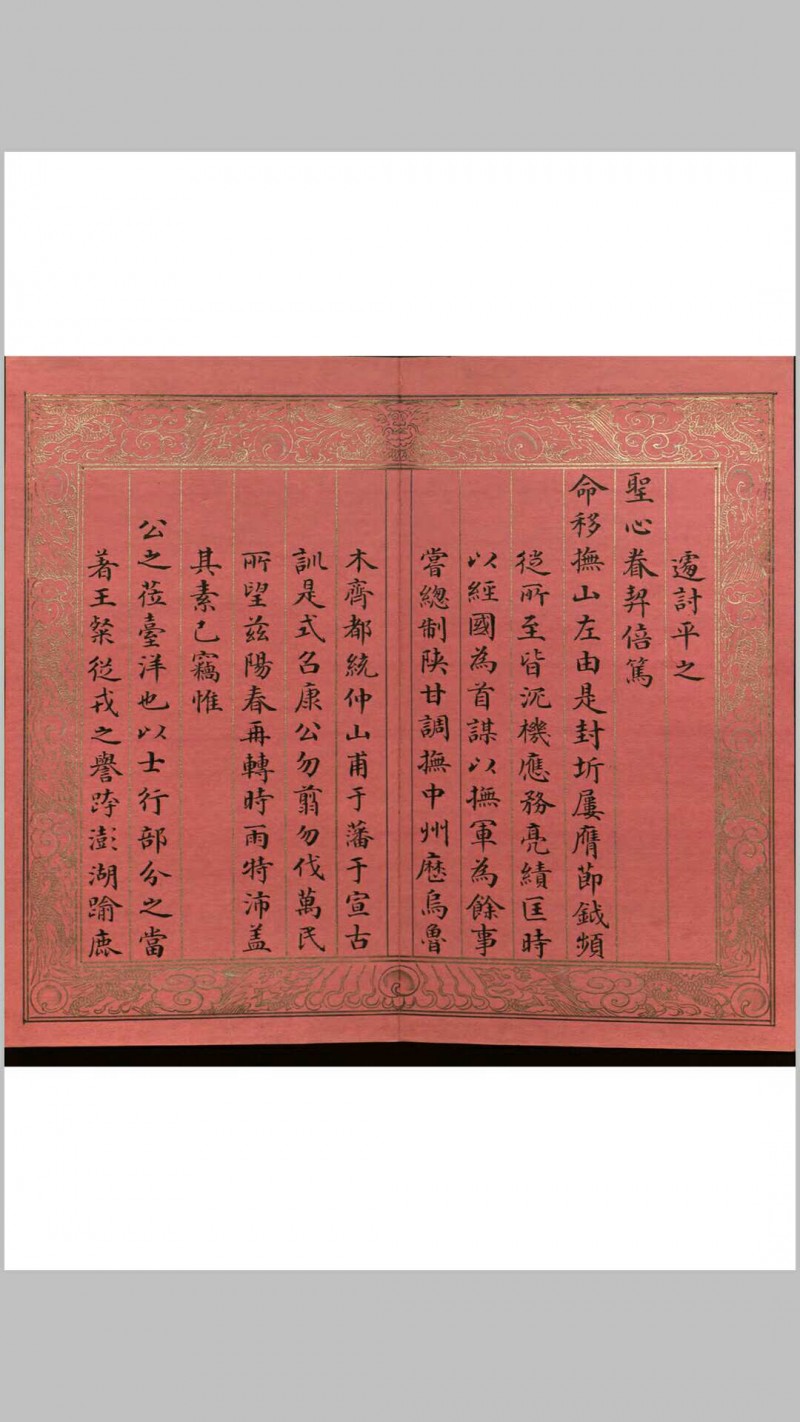 遽討平之
聖心眷契倍篤
命移撫山左由是封圻屢膺節鉞頻
從所至皆沉機應務亮績匡時
以經國為首謀以撫軍為餘事
嘗總制陝甘調撫中州歷烏魯
木齊都統仲山甫于藩于宣古
訓是式召康公勿翦勿伐萬民
所望茲陽春再轉時雨特沛蓋
其素已竊惟
公之蒞臺洋也以士行部分之當
著王粲從戎之譽跨澎湖踰鹿